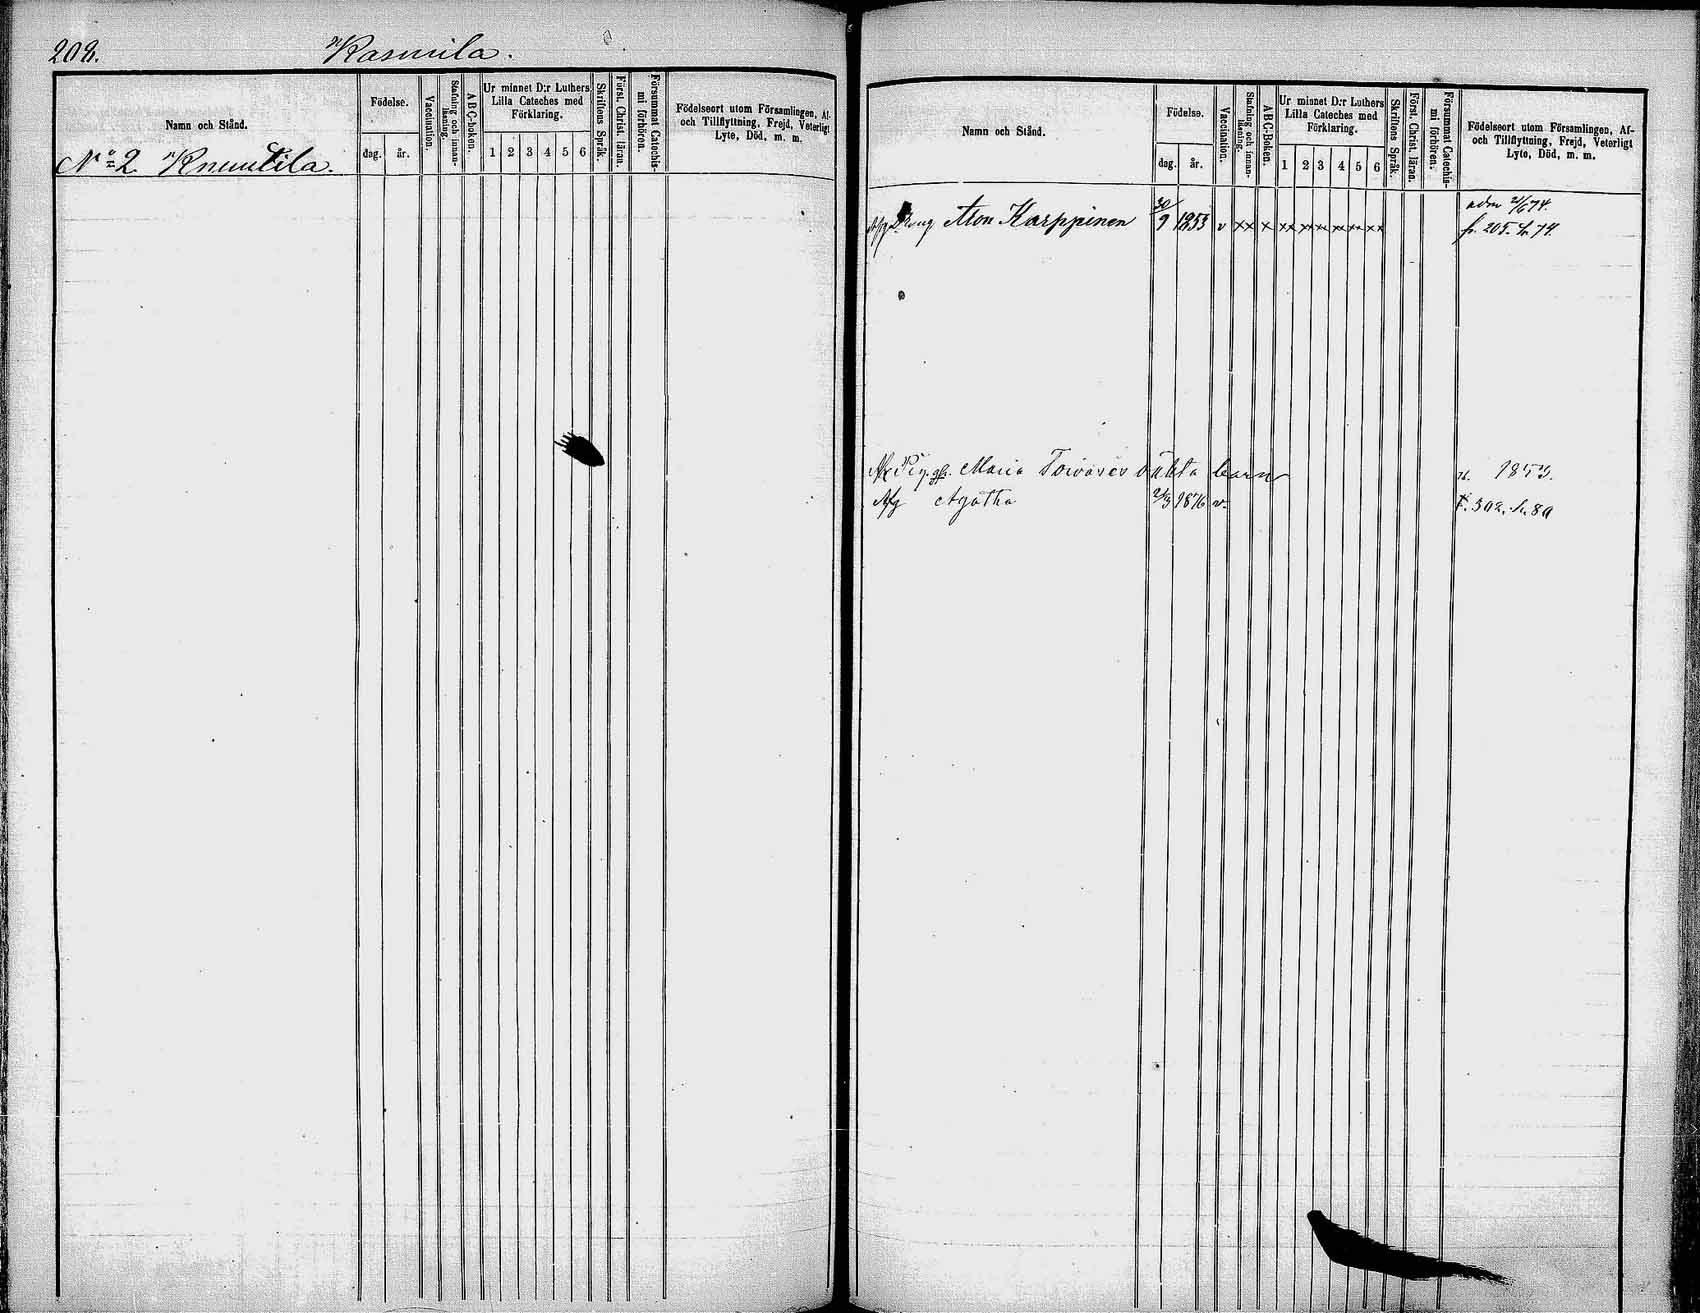 208.
Kasurila.
Namn och Stånd.
Födelse.
dag.
år.
Vaccination.
Stafning och innan-
läsning.
ABC-boken.
Ur minnet D:r Luthers
Lilla Cateches med
Förklaring.
1 2 3 4 5 6
Skriftens Språk.
Först. Christ. läran.
Försummat Catechis-
mi förhören.
Födelseort utom Församlingen, Af-
och Tillflyttning, Frejd, Veterligt
Lyte, Död, m. m.
No 2. Knuutila.
Namn och Stånd.
Födelse.
dag.
år.
Vaccination.
Stafning och innan-
läsning.
ABC-Boken.
Ur minnet D:r Luthers
Lilla Cateches med
Förklaring.
1 2 3 4 5 6
Skriftens Språk.
Först. Christ. läran.
Försummat Catechis-
mi förhören.
Födelseort utom Församlingen, Af-
och Tillflyttning, Frejd, Veterligt
Lyte, Död, m. m.
Karppinen 30/9 1853 v xx x xx xx xx xx xx xx fr. 205. 74.
Maria oäkta barn 1853.
Agatha 1876 v. 502. 80